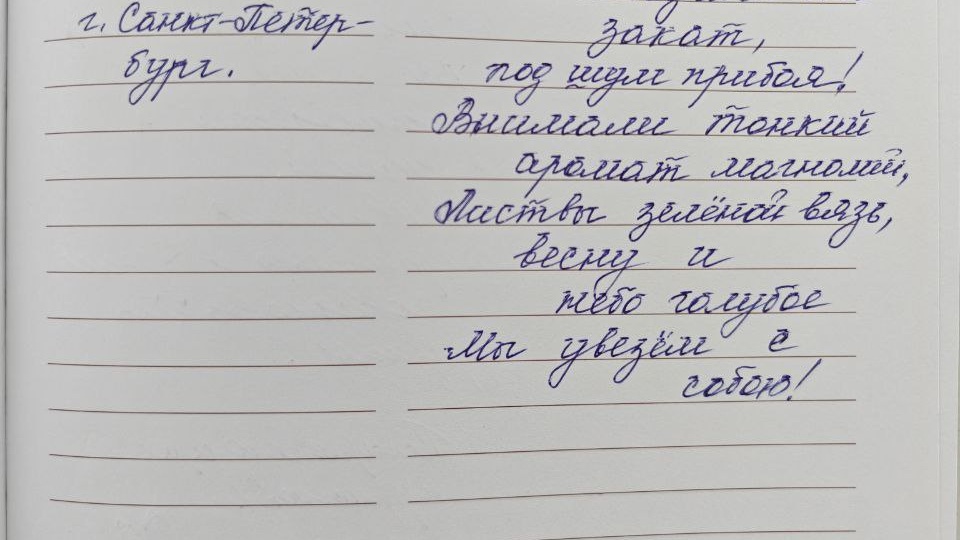 г. Санкт-Петер-
бург.
закат,
под шум прибоя!
Внимали тонкий
аромат магнолий,
Листвы зелёной вязь,
весну и
небо голубое
Мы увезём с
собою!